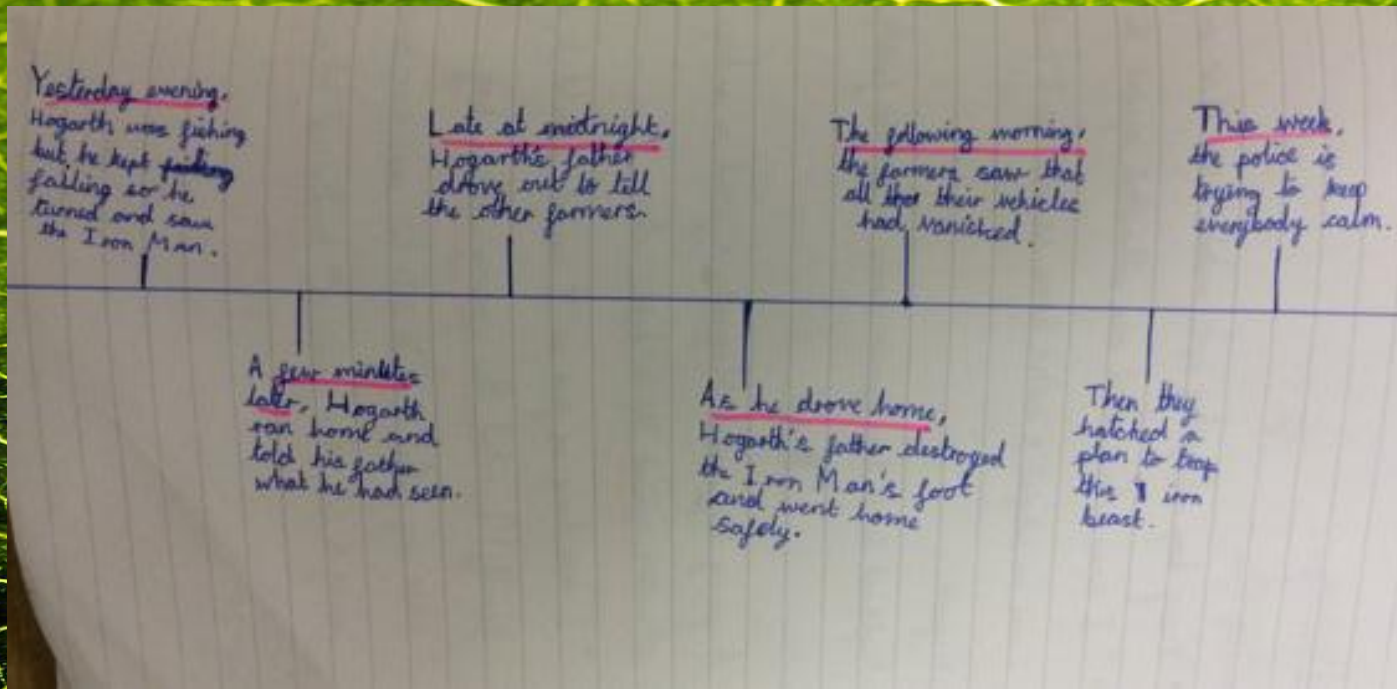 Yesterday evening,
Hogarth was fishing
but he kept
falling so he
turned and saw
the Iron Man.
A few minutes
later, Hogarth
ran home and
told his father
what he had seen.
Late at midtnight,
Hogarth's father
drove out to tell
the other farmers.
As he drove home,
Hogarth's father destroyed
the Iron Man's foot
and went home
safely.
The following morning,
the farmers saw that
all their vehicles
had vanished.
Then they
hatched a
plan to trap
this iron
beast.
This week,
the police is
trying to keep
everybody calm.